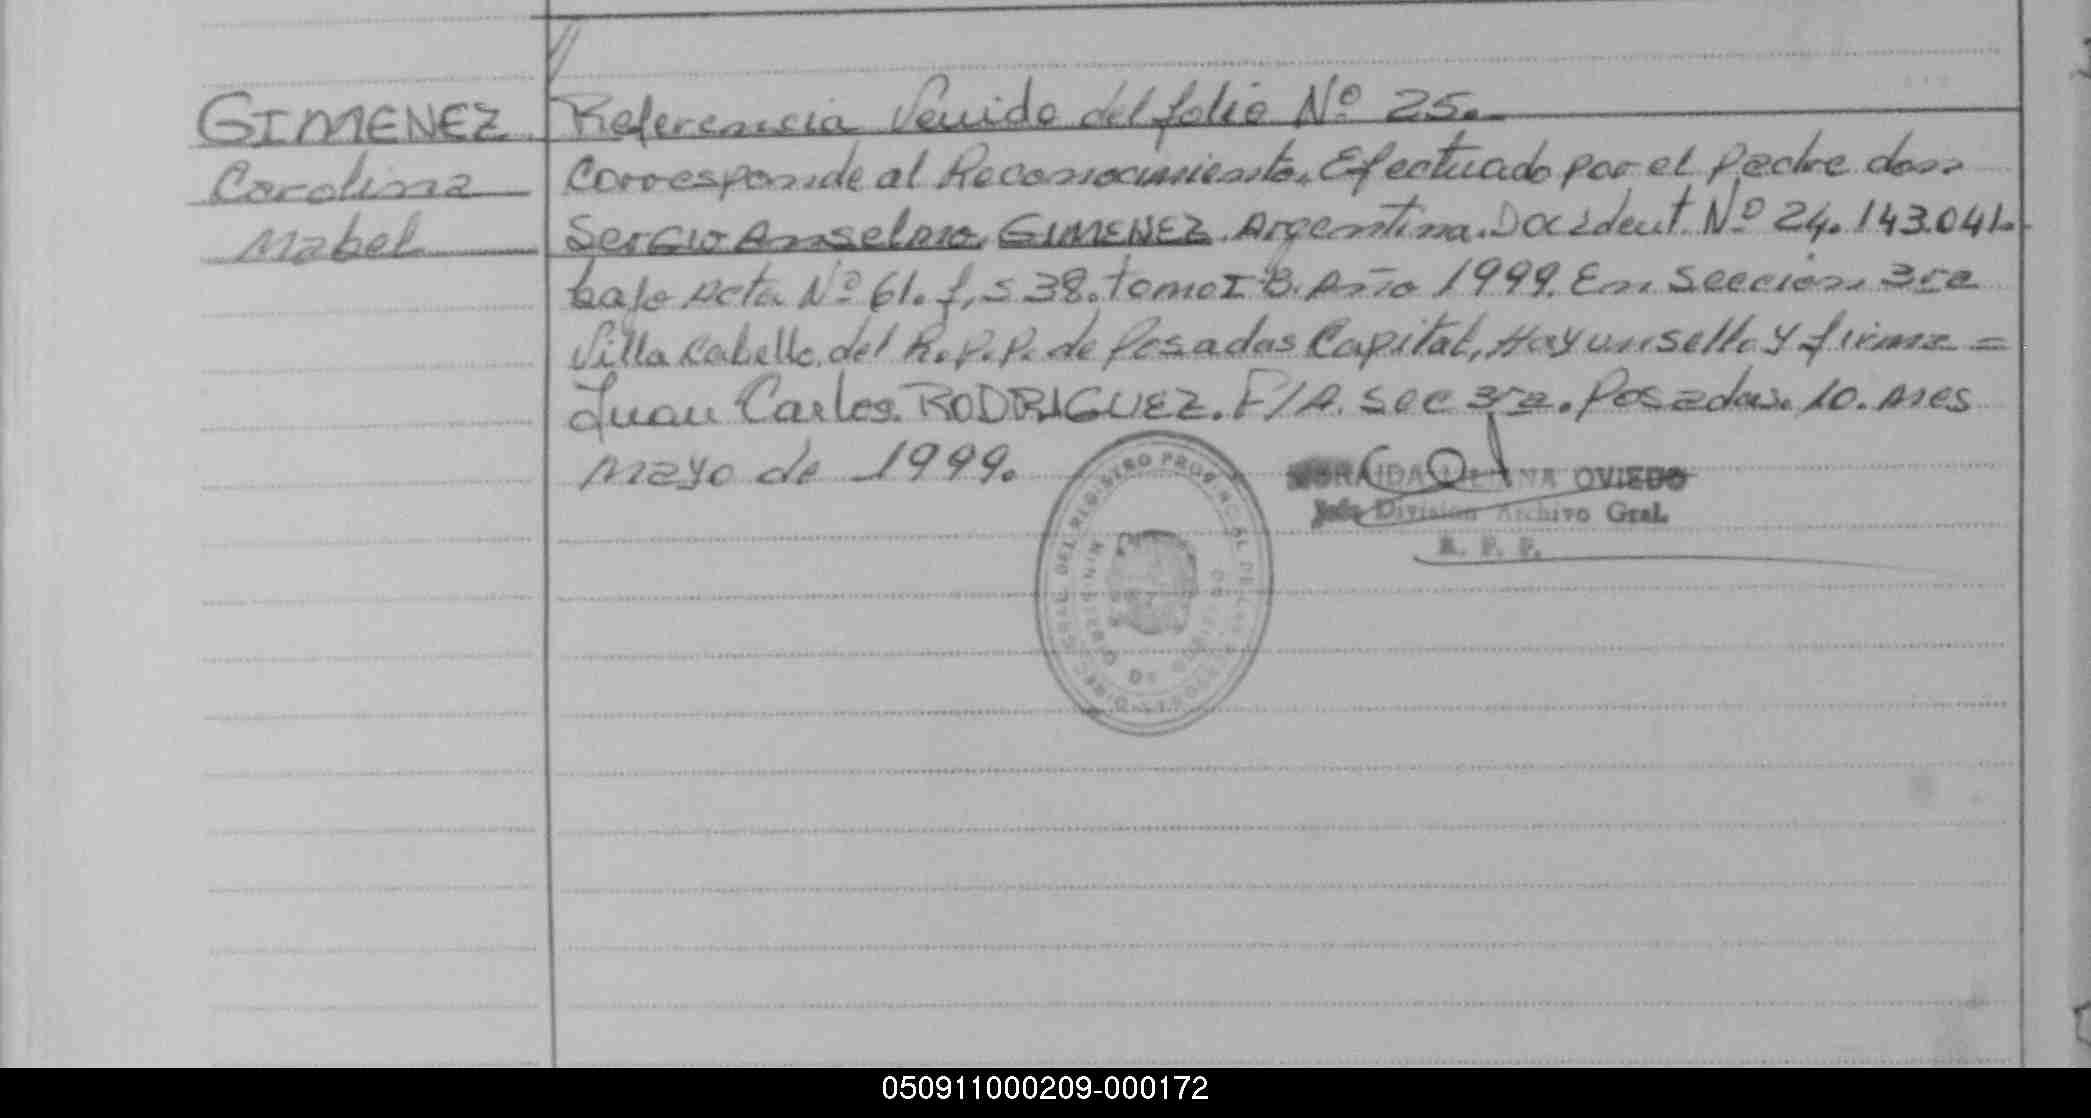 GIMENEZ
Carolina
Mabel
Referencia Venido del folio Nº 25.
Corresponde al Reconocimiento. Efectuado por el padre don.
Sergio Anselmo GIMENEZ. Argentina. Doc ident. Nº 24.143.041.
bajo Acta Nº 61. f,s 38. tomo I B. Año 1999. En Sección 3ra
Villa Cabello. del R.P.P. de Posadas Capital, Hay un sello y firma =
Juan Carlos. RODRIGUEZ. F/A. Sec 3ra. Posadas. 10. mes
mayo de 1999.
OVIEDO
Jefe División Archivo Gral.
R. P. P.
DEL REGISTRO PROVINCIAL DE LAS PERSONAS
050911000209-000172